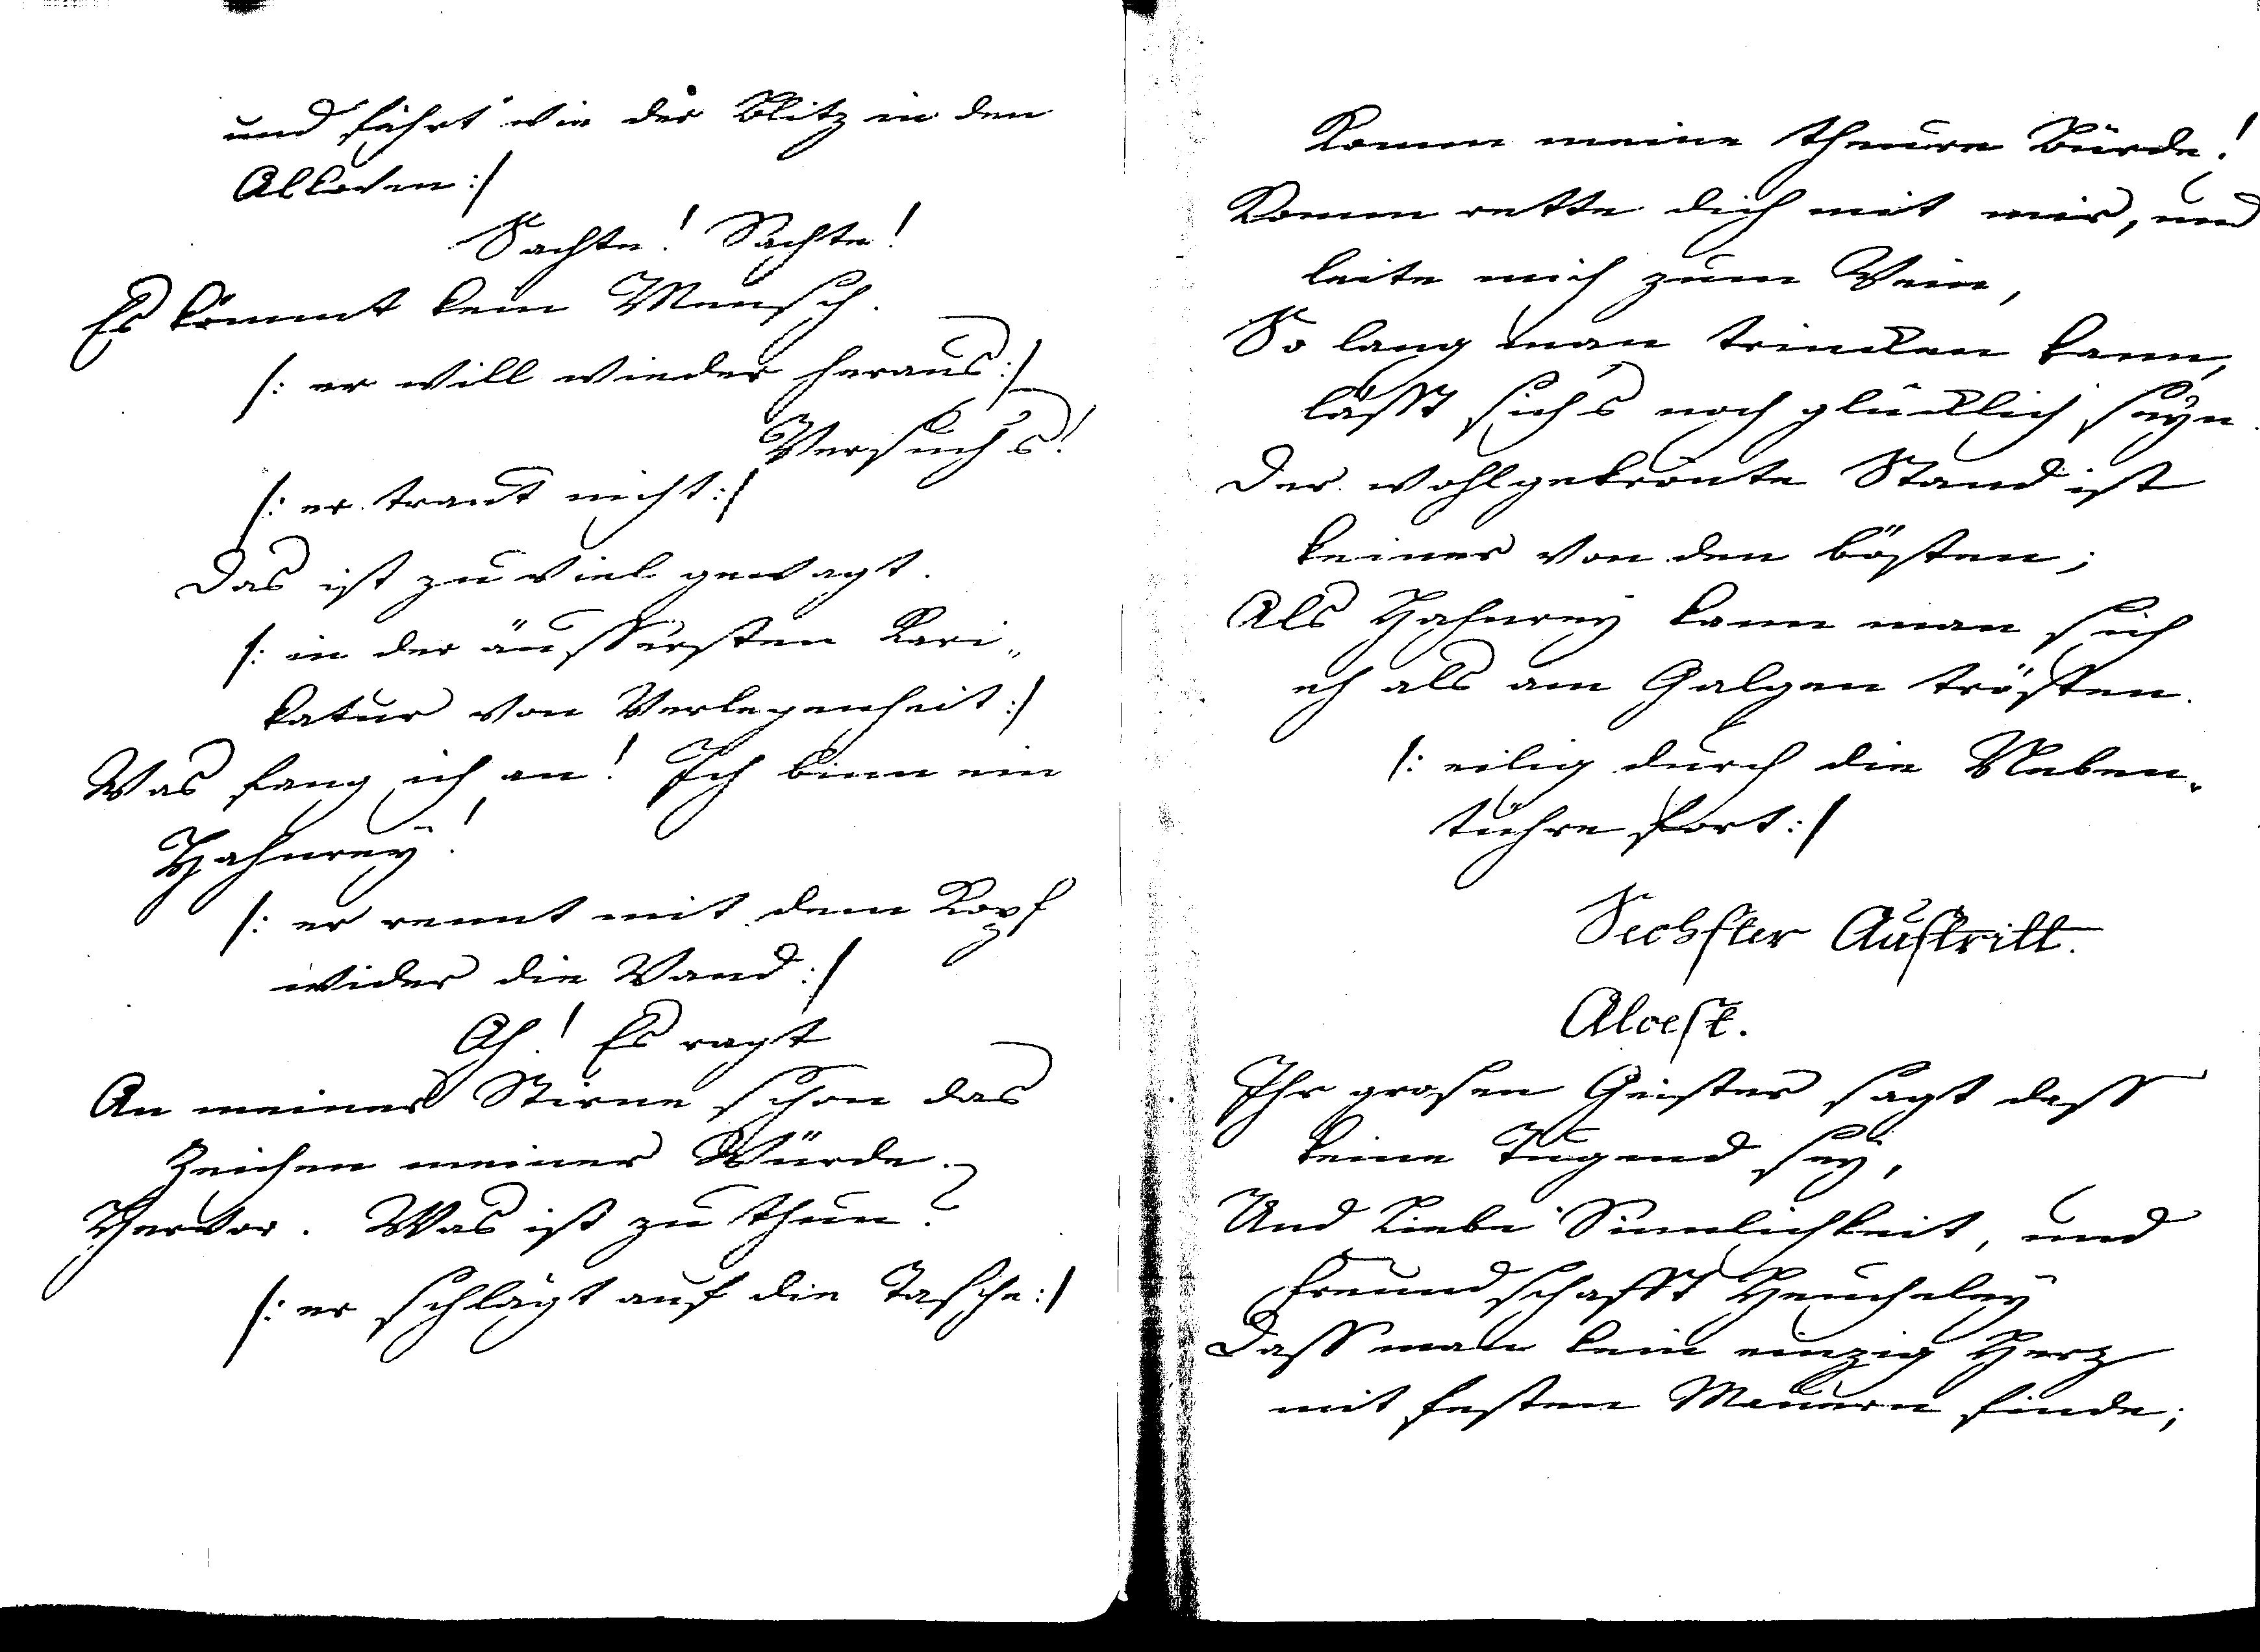 und fährt wie der Blitz in den
Alkoven :/
Sachte! Sachte!
Es kömmt kein Mensch.
/: er will wieder heraus :/
Versuch's!
/: er traut nicht :/
Das ist zu viel gewagt.
/: in der äussersten Kari„
katur von Verlegenheit :/
Was fang ich an! Ich binn ein
Hahnrey!
/: er rennt mit dem Kopf
wider die Wand :/
Ah! Es ragt
An meiner Stirne schon das
Zeichen meiner Würde.
Hervor. Was ist zu thun?
/: er schlägt auf die Tasche :/
Komm meine theure Bürde!
Komm rette dich mit mir, und
leite mich zum Wein,
So lang man trincken kann,
lässt sich's noch glücklich seyn.
Der wohlgekrönte Stand ist
keiner von den bösten;
Als Hahnrey kann man sich
eh als am Galgen trösten.
/: eilig durch die Neben„
tühre fort :/
Sechster Auftritt.
Alcest.
Ihr grosen Geister sagt dass
keine Tugend sey,
Und Liebe Sinnlichkeit, und
Freundschafft Heucheley
Dass man kein einzig Herz
mit festen Mauern finde;